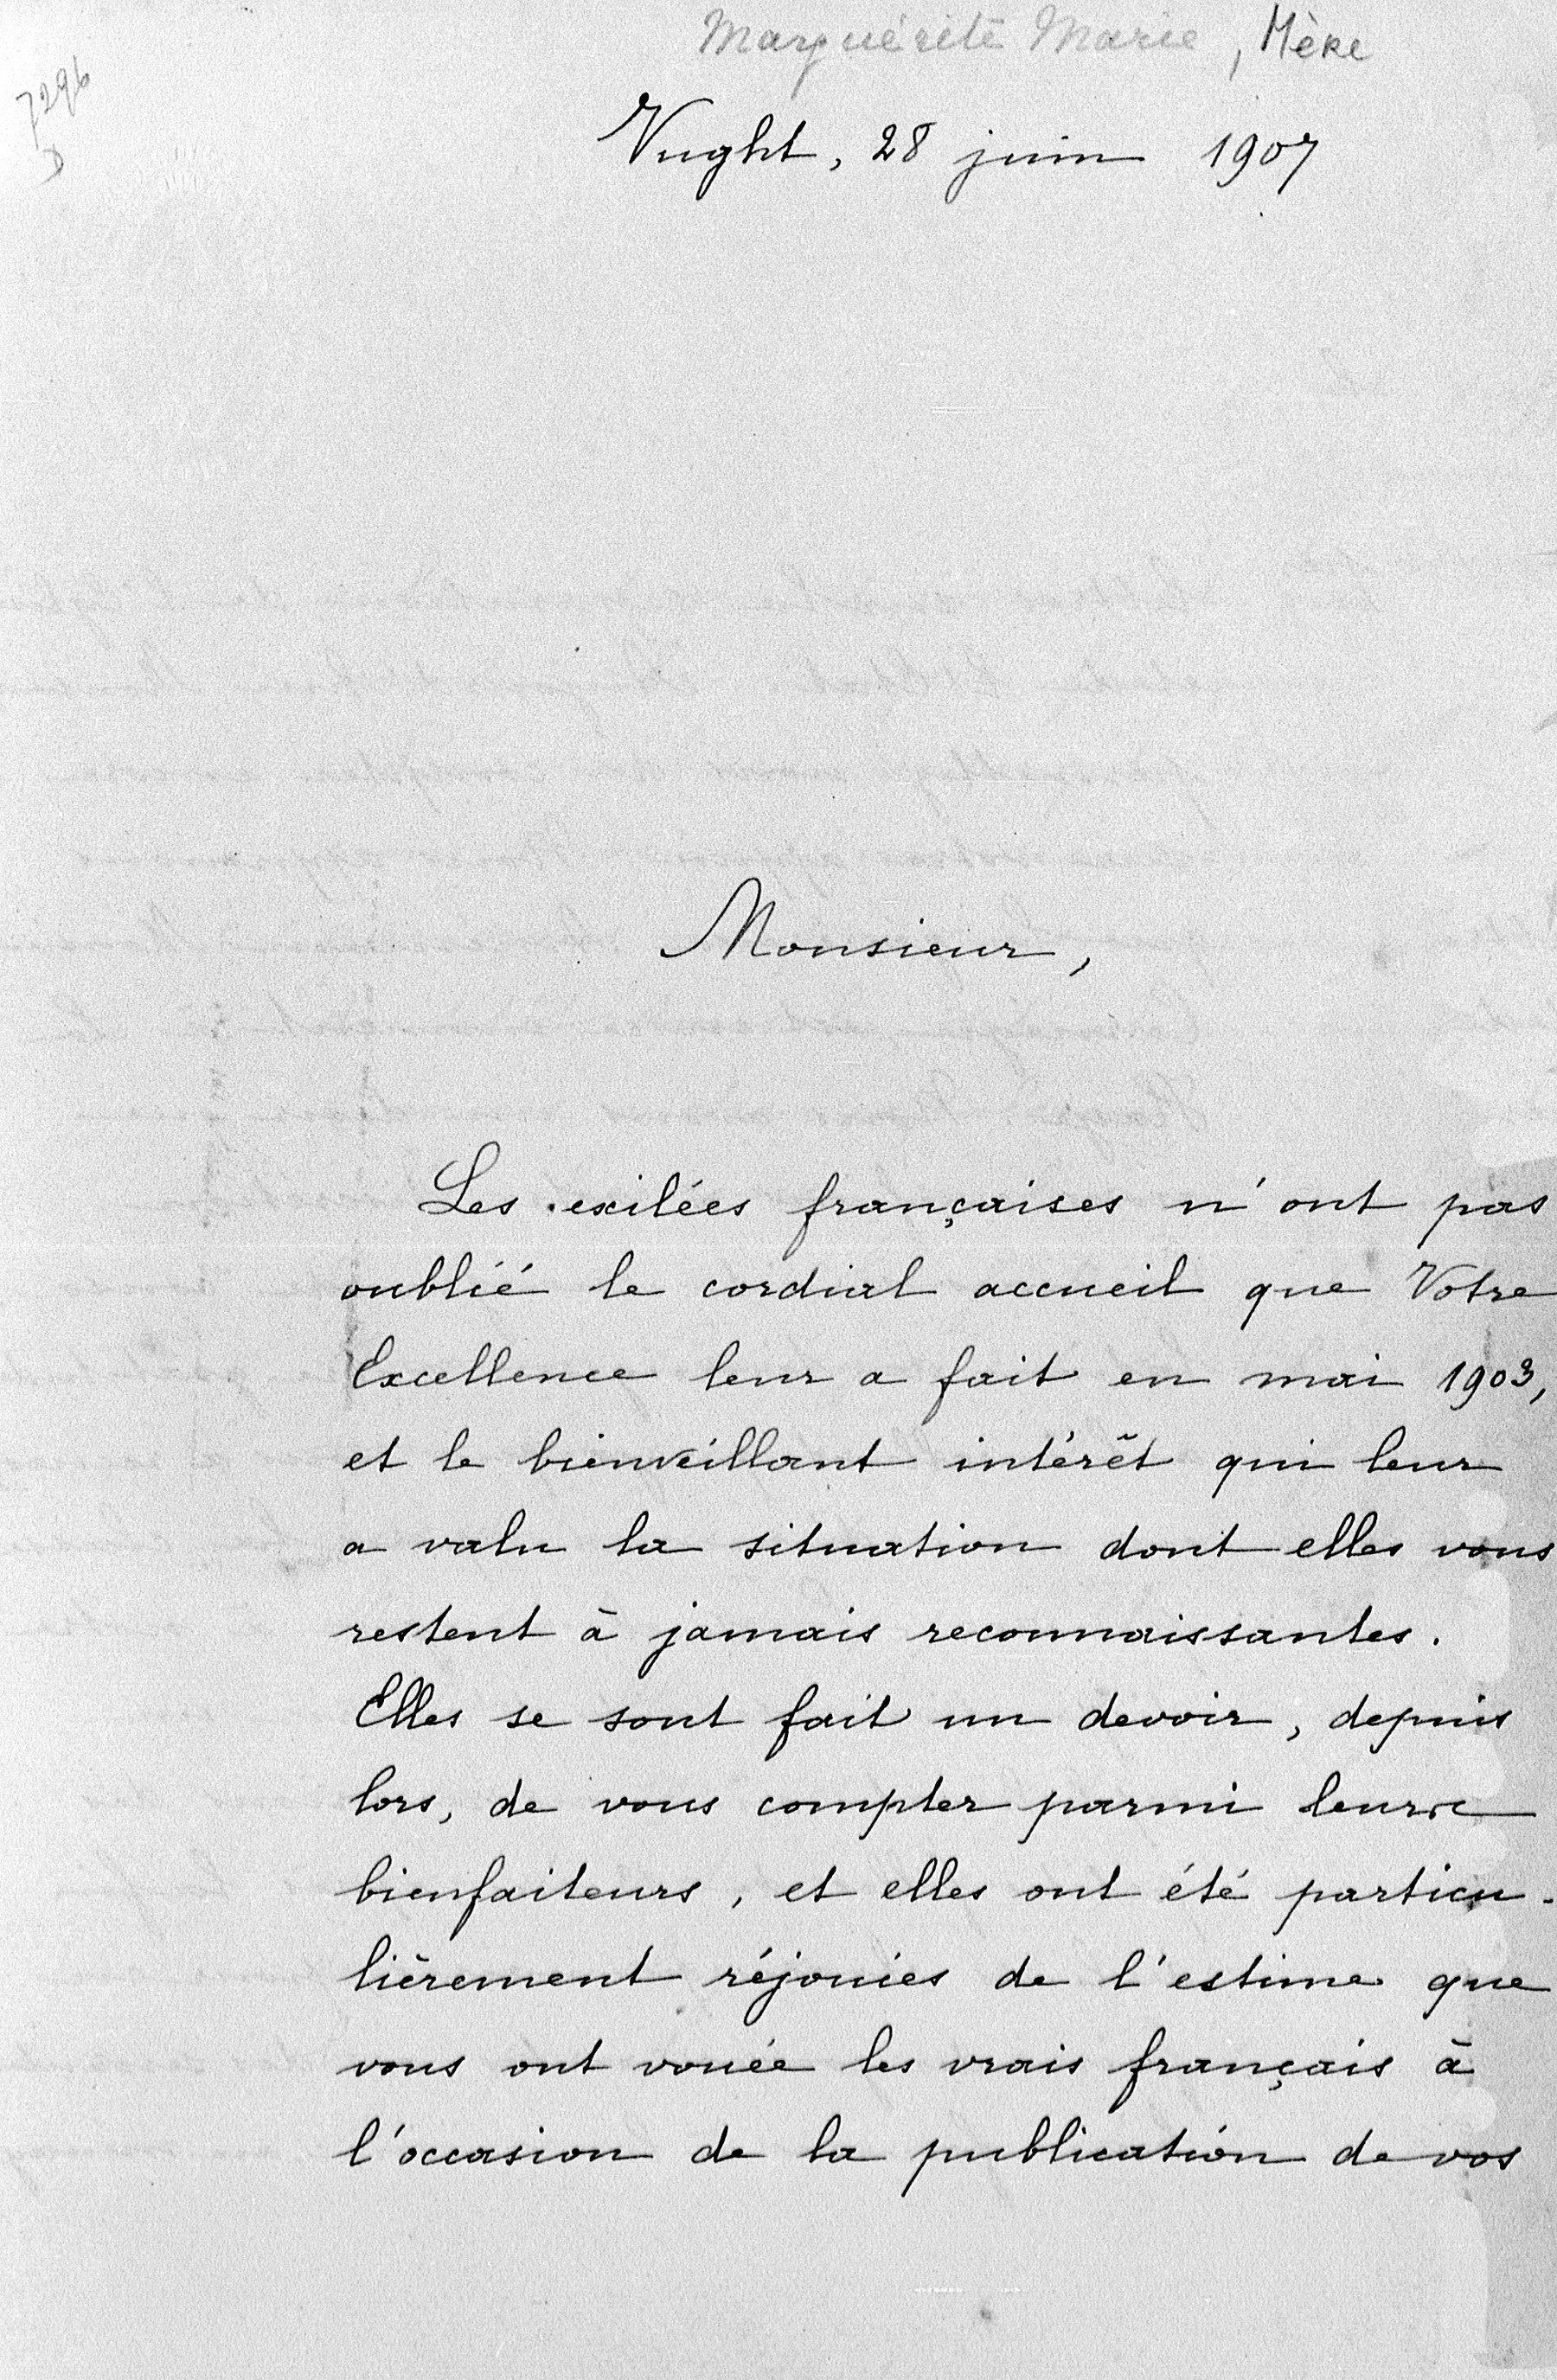 Marguérite Marie, Mère
7296
D
Vught, 28 juin 1907
Monsieur,
Les exilées françaises n'ont pas
oublié le cordial accueil que Votre
Excellence leur a fait en mai 1903,
et le bienveillant intérêt qui leur
a valu la situation dont elles vous
restent à jamais reconnaissantes.
Elles se sont fait un devoir, depuis
lors, de vous compter parmi leurs
bienfaiteurs, et elles ont été particu-
lièrement réjouies de l'estime que
vous ont vouée les vrais français à
l'occasion de la publication de vos